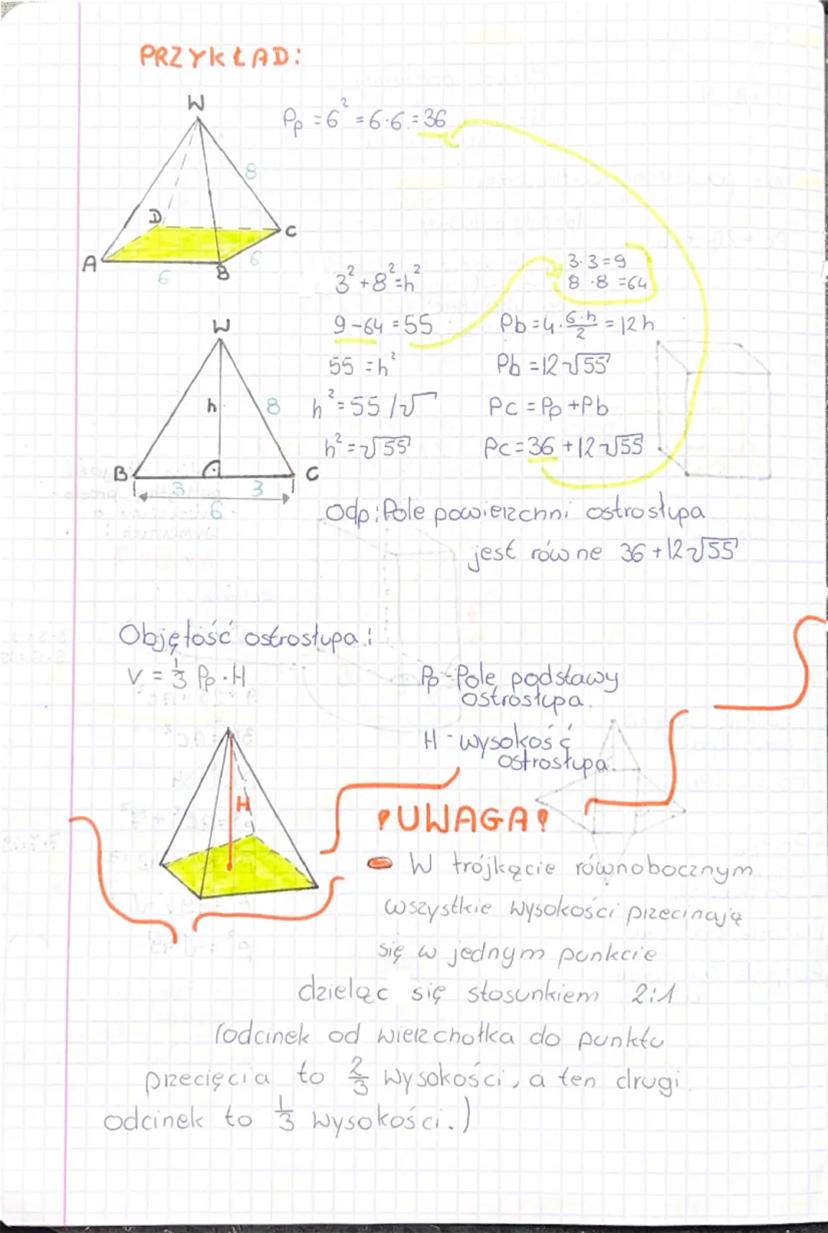 PRZYKŁAD:
W
Pp = 6² = 6·6 = 36
8
D
C
A
B
6
6
3·3=9
8·8=64
3²+8²=h²
9-64=55
Pb=4·6·h/2=12h
55=h²
Pb=12√55
W
h
8
h²=55 /√
Pc=Pp+Pb
h²=√55
Pc=36+12√55
B
C
3
3
6
Odp: Pole powierzchni ostrosłupa
jest równe 36+12√55
Objętość ostrosłupa:
V = 1/3 Pp·H
Pp-Pole podstawy
ostrosłupa.
H-wysokość
ostrosłupa.
H
!UWAGA!
W trójkącie równobocznym
wszystkie wysokości przecinają
się w jednym punkcie
dzieląc się stosunkiem 2:1
(odcinek od wierzchołka do punktu
przecięcia to 2/3 wysokości, a ten drugi
odcinek to 1/3 wysokości.)